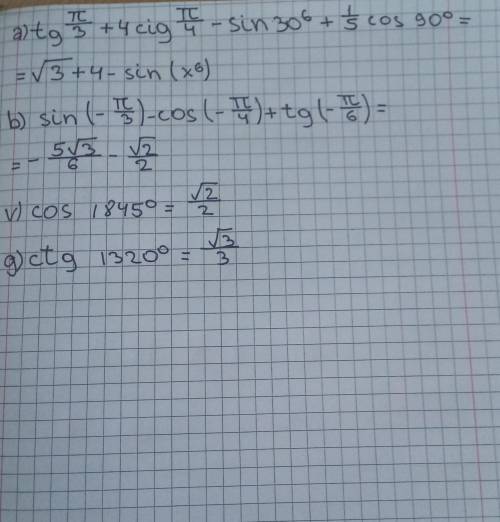 a) tg π/3 + 4 cig π/4 - sin 30⁶ + 1/5 cos 90⁰ =
= √3 + 4 - sin (x⁶)
b) sin (- π/3) - cos (- π/4) + tg (- π/6) =
= - 5√3/6 - √2/2
v) cos 1845⁰ = √2/2
g) ctg 1320⁰ = √3/3